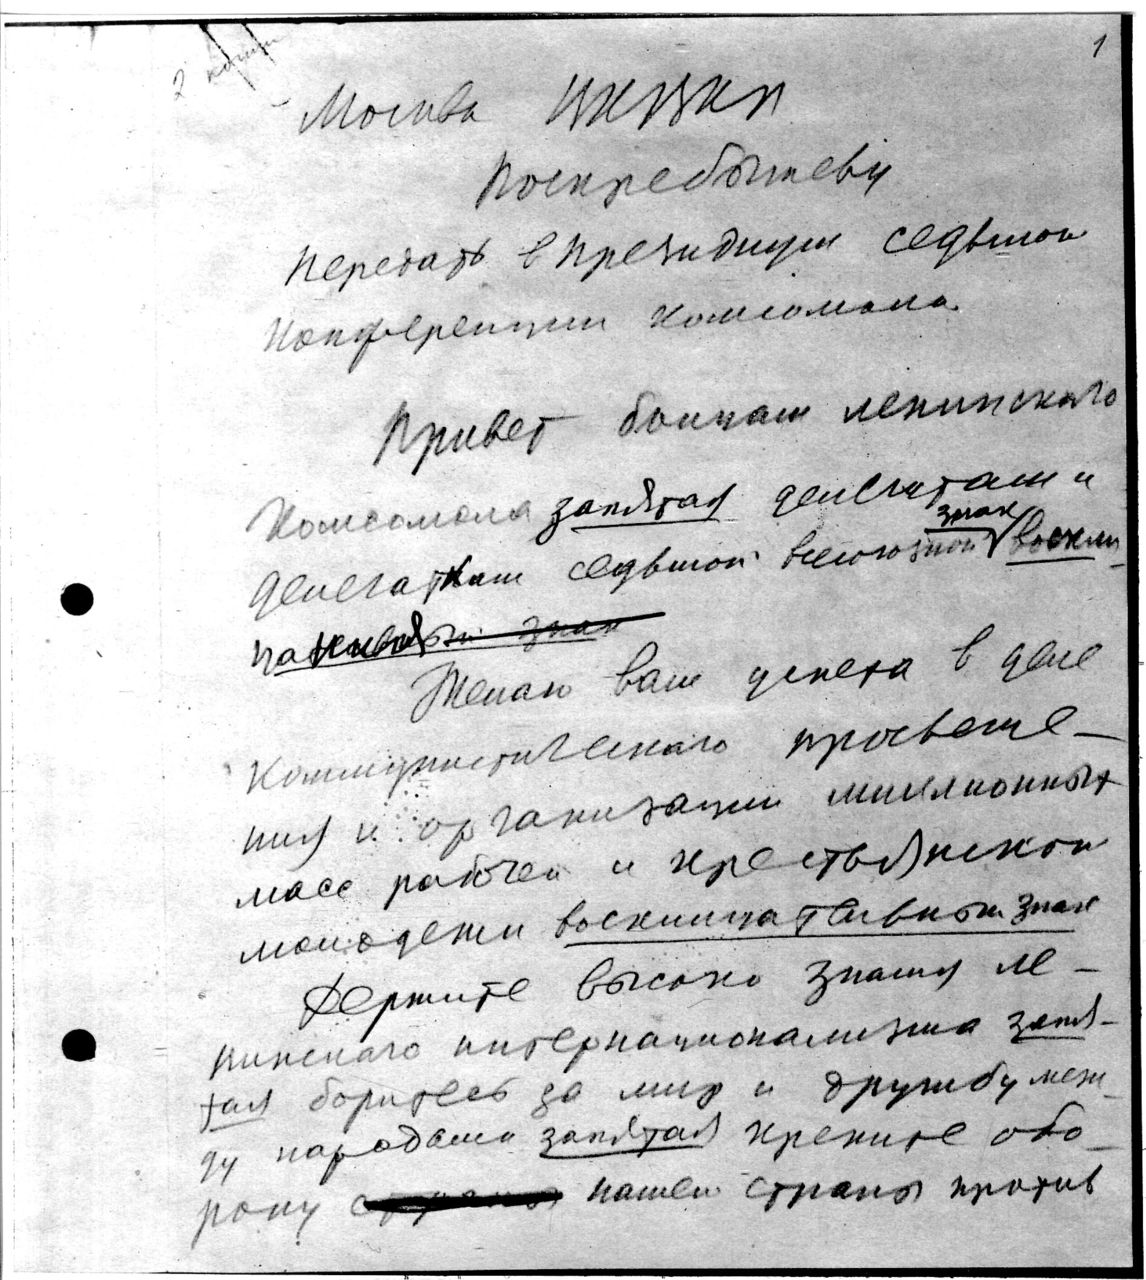 2 копии
1
Москва ЦКВКП
Поскребышеву
Передать в Президиум седьмой
Конференции комсомола
Привет бойцам ленинского
Комсомола запятая делегатам и
знак
делегаткам седьмой всесоюзной воскли-
цательный знак
Желаю вам успеха в деле
Коммунистического просвеще-
ния и организации миллионных
масс рабочей и крестьянской
молодежи восклицательный знак
Держите высоко знамя ле-
нинского интернационализма запя-
тая боритесь за мир и дружбу меж-
ду народами запятая крепите обо-
рону нашей страны против